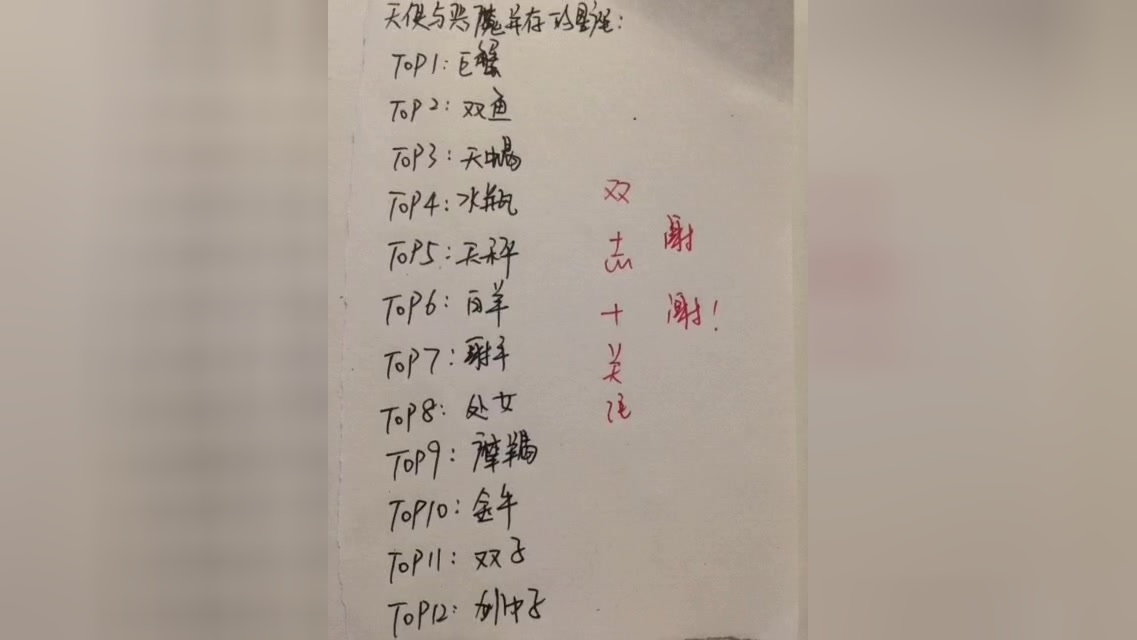 天使与恶魔并存的星座:
TOP1:巨蟹
TOP2:双鱼
TOP3:天蝎
TOP4:水瓶
TOP5:天秤
TOP6:白羊
TOP7:射手
TOP8:处女
TOP9:摩羯
TOP10:金牛
TOP11:双子
TOP12:狮子
双击+关注
谢谢!